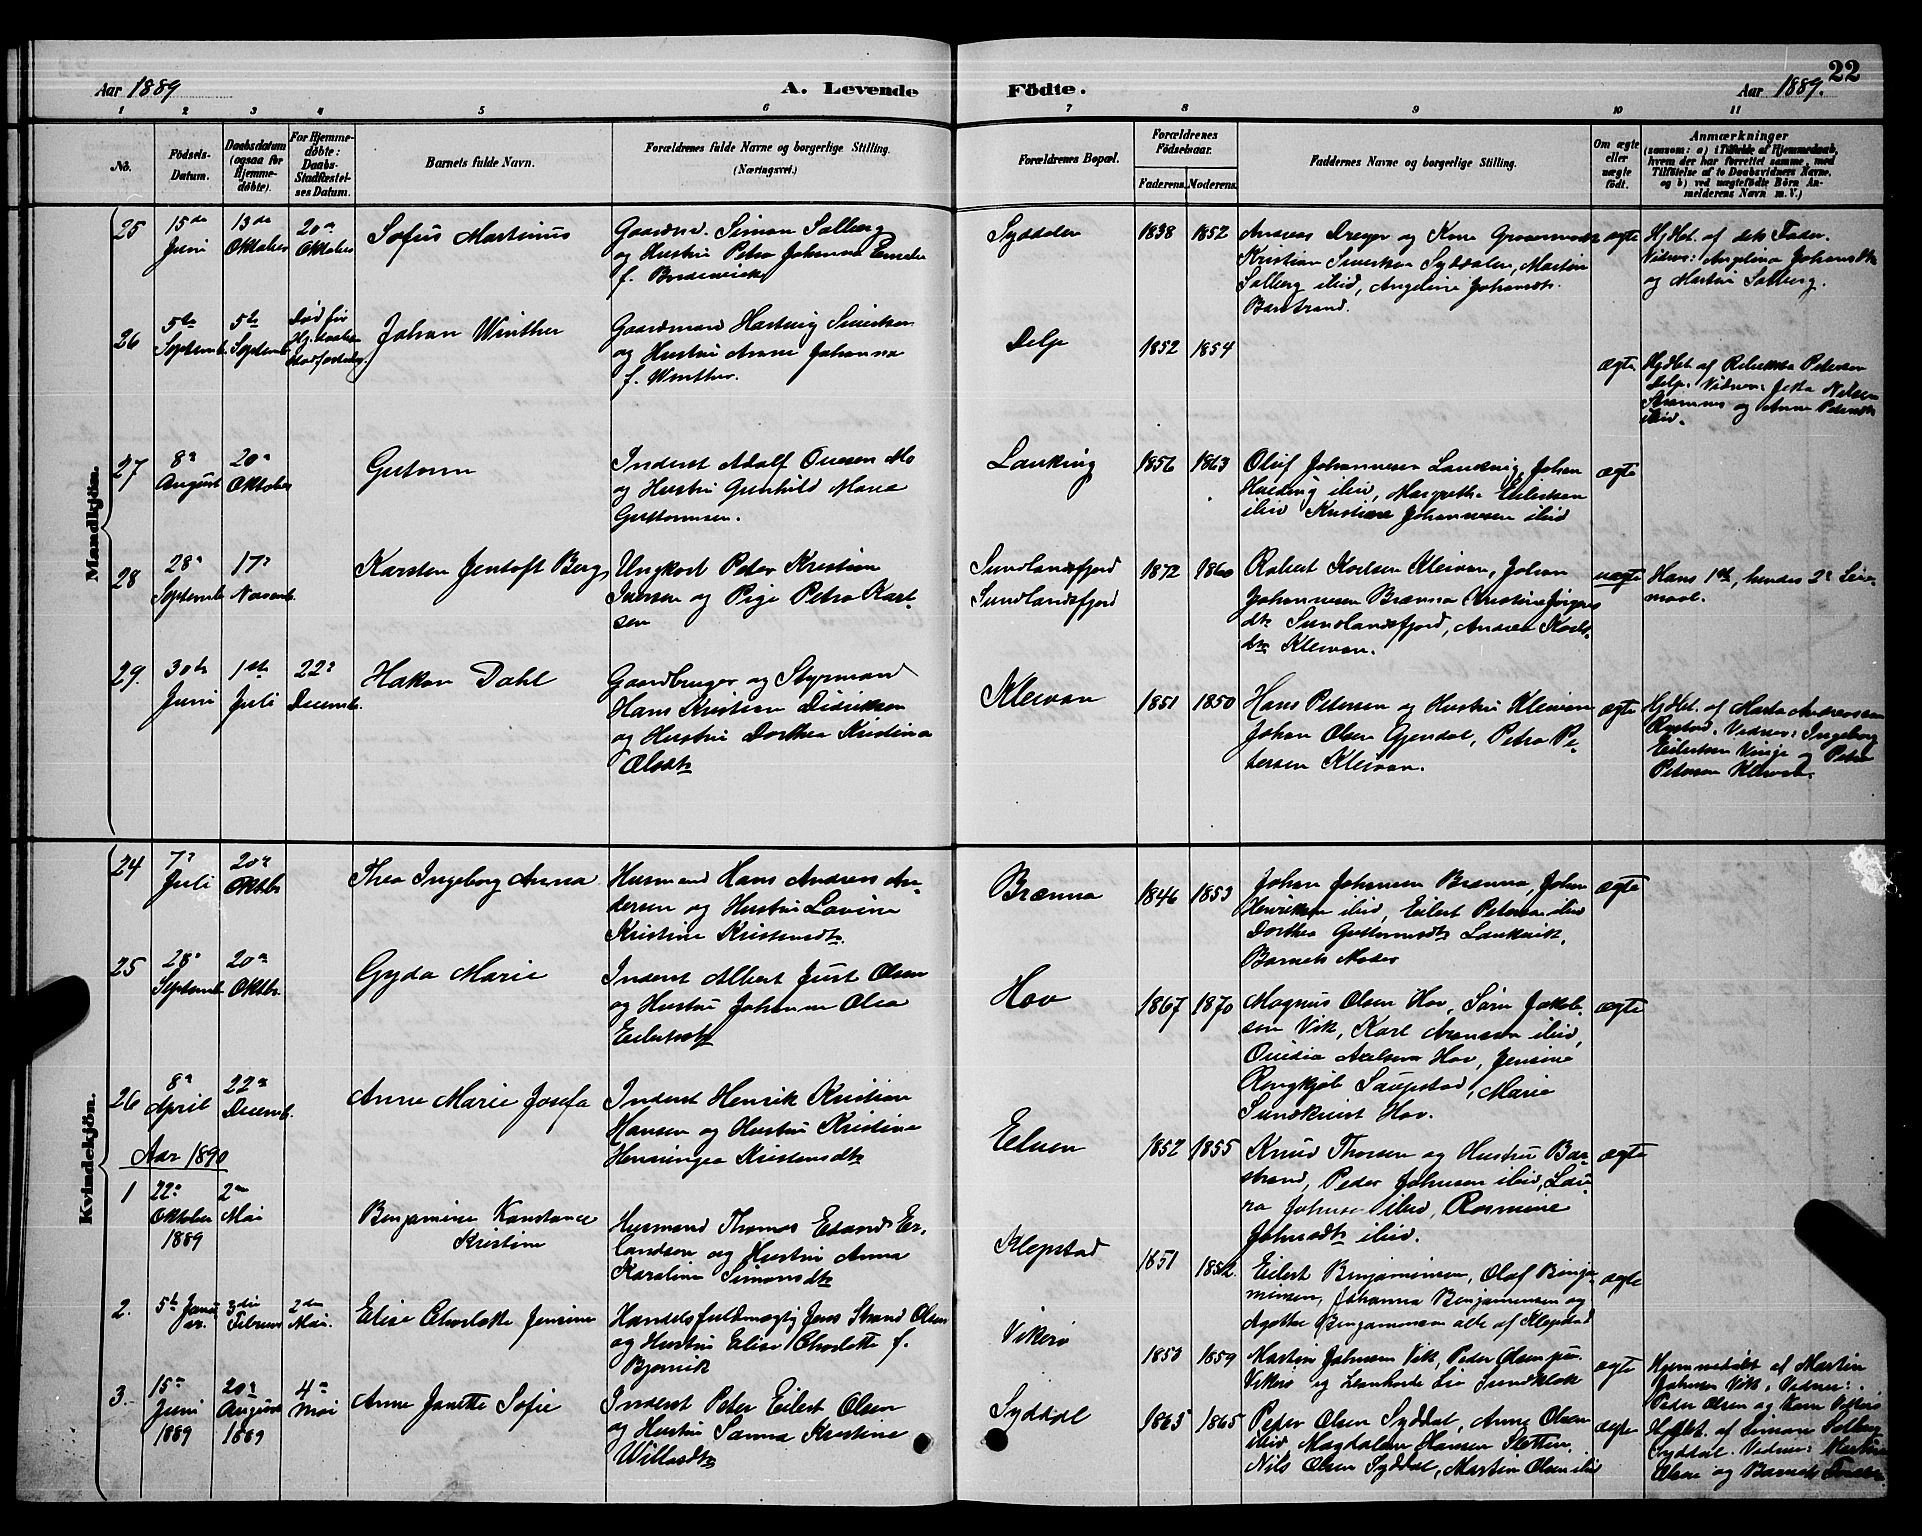 22
Aar 1889
A. Levende
Födte.
Aar 1889.
1 2 3 4 5 6 7 8 9 10 11
No.
Födsels-
Datum.
Daabsdatum
(ogsaa for
Hjemme-
döbte).
For Hjemme-
döbte:
Daabs-
Stadfæstel-
ses Datum.
Barnets fulde Navn.
Forældrenes fulde Navne og borgerlige Stilling.
(Næringsvei.)
Forældrenes Bopæl.
Forældrenes
Födselsaar.
Faderens. Moderens.
Faddernes Navne og borgerlige Stilling.
Om ægte
eller
uægte
födt.
Anmærkninger
(saasom: a) i Tilfælde af Hjemmedaab,
hvem der har forrettet samme, med
Tilföielse af to Daabsvidners Navne,
og b) ved uægtefödte Börn An-
melderens Navn m. V.)
Mandkjön.
25
15de
Juni
13de
Oktober
20de
Oktober
Sofus Martinus
Simon Solberg
og Hustru Petra Johanna
f. Brodervick
Syddalen
1838 1852
Andreas Dreyer og
Kristian Sivertsen Syddalen, Martin
Solberg ibid, Angeline Johansdtr
Barstrand.
ægte
Hjdbt. af dets Fader.
Vidner: Angelina Johansdtr
og Martin Solberg.
26
5te
Septemb.
5te
Septemb.
Død før
Johan Winther
Gaardmand Hartvig Sivertsen
og Hustru Anne Johanna
f. Winther.
Delp
1852 1854
ægte
Hjdbt. af Rebekka Petersen
Delp. Vidner: Nilsen
og Anne Petersdtr
ibid.
27
8de
August
20de
Oktober
Gutorm
Inderst Adolf Ovesen Mo
og Hustru Gunhild Marie
Guttormsen.
Laukvig
1856 1863
Oluf Johannesen Laukvig, Johan
ibid, Margrethe Eilertsen
ibid Kristine Johannesen ibid
ægte
28
28de
Septemb.
17de
Novemb.
Karsten Jentoft Berg
Ungkarl Peder Kristian
Iversen og Pige Petra Karl-
sen
Sundlandsfjord
Sundlandsfjord
1872 1860
Robert Karlsen Kleivan, Johan
Johannesen Brænna Kristine Jörgens
dtr Sundlandsfjord, Andrea Karls-
dtr Kleivan.
uægte
Hans 1ste, hendes 2det Leier-
maal.
29.
30te
Juni
1ste
Juli
22de
Decemb.
Hakon Dahl
Gaardbruger og Styrmand
Hans Kristian Didriksen
og Hustru Dorthea Kristina
Olsdtr
Kleivan
1851 1850
Hans Petersen og Hustru Kleivan
Johan Olsen Gjendal, Petra Pe-
tersen Kleivan.
ægte
Hjdbt. af Marta Andreassen
Vidner: Ingeborg
Eilertsen Vinje og Petra
Petersen Kleivan.
Kvindekjön.
24
7de
Juli
20de
Oktbr
Thea Ingeborg Anna
Husmand Hans Andreas An-
dersen og Hustru Lavina
Kristine Kristensdtr.
Brænna
1846 1853
Johan Johansen Brænna, Johan
Henriksen ibid, Eilert Petersen ibid
Dorthea Guttormsdtr Laukvik,
Barnets Moder
ægte
25
28de
Septemb.
20de
Oktbr.
Gyda Marie
Inderst Albert Just Olsen
og Hustru Johanna Olea
Eilertsdtr
Hov
1867 1870
Magnus Olsen Hov, Sören Jakob-
sen Vik, Karl Arensen ibid,
Ovidia Axelsen Hov, Jensine
Rongkjöb Saupstad, Marie
Sundkvist Hov.
ægte
26
8de
April
22de
Decemb.
Anne Marie Josefa
Inderst Henrik Kristian
Hansen og Hustru Kristine
Henningea Kristensdtr
Eelven
1852 1855
Knud Thorsen og Hustru Bar-
strand, Peder Johnsen ibid, Lau-
ra Johnsen ibid, Rosmine
Johnsdtr ibid.
ægte
Aar 1890
1
22de
Oktober
1889
2den
Mai
Benjamine Konstance
Kristine
Husmand Thomas Edvard Er-
landsen og Hustru Anna
Karoline Simonsdtr
Klepstad
1851 1852
Eilert Benjaminsen, Olaf Benja-
minsen, Johanna Benjaminsen og
Agathe Benjaminsen alle af Klepstad
ægte
2.
5te Janu-
ar.
3die
Februar
2den
Mai.
Elise Charlotte Jensine
Handelsfuldmægtig Jens Strand Olsen
og Hustru Elise Charlotte f.
Bjervik
Vikerö
1853 1859
Martin Johnsen Vik, Peder Olsen
Vikerö og Leonharde Lie Sundklak
ægte
Hjemmedöbt af Martin
Johnsen Vik. Vidner:
Peder Olsen og
3
15de
Juni
1889
20de
August
1889
4de
Mai
Anne Janette Sofie
Inderst Peter Eilert Olsen
og Hustru Sanna Kristine
Willasdtr
Syddal
1863 1865
Peder Olsen Syddal, Anne Olsen
ibid Magdalena Hansen Sletten,
Nils Olsen Syddal, Martin Olsen ibid
ægte
Hjdbt. af Simon Solberg
Syddal. Vidner: Martin
Olsen og Barnets